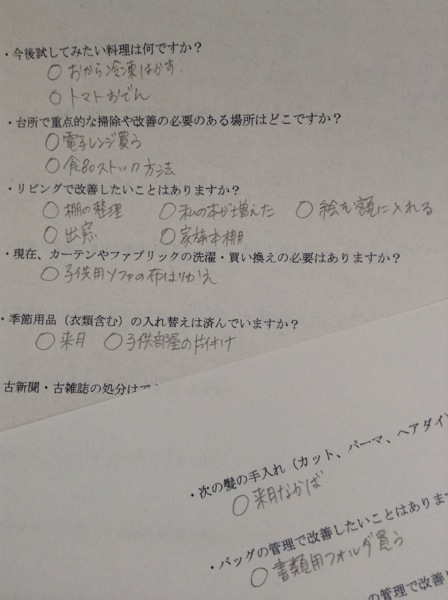 ・今後試してみたい料理は何ですか？
○おから冷凍はかす
○トマトおでん
・台所で重点的な掃除や改善の必要のある場所はどこですか？
○電子レンジ買う
○食品ストック方法
・リビングで改善したいことはありますか？
○棚の整理 ○私の本が増えた ○絵を額に入れる
○出窓 ○家族本棚
・現在、カーテンやファブリックの洗濯・買い換えの必要はありますか？
○子供用ソファの布はりかえ
・季節用品（衣類含む）の入れ替えは済んでいますか？
○来月 ○子供部屋の片付け
古新聞・古雑誌の処分は
・次の髪の手入れ（カット、パーマ、ヘアダイ
○来月なかば
・バッグの管理で改善したいことはありま
○書類用フォルダ買う
の管理で改善し